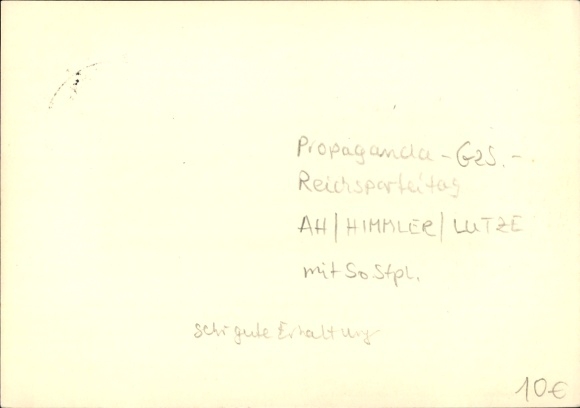 Propaganda - GZS. -
Reichsparteitag
AH/HIMMLER/LUTZE
mit So Stpl.
sehr gute Erhaltung
10€